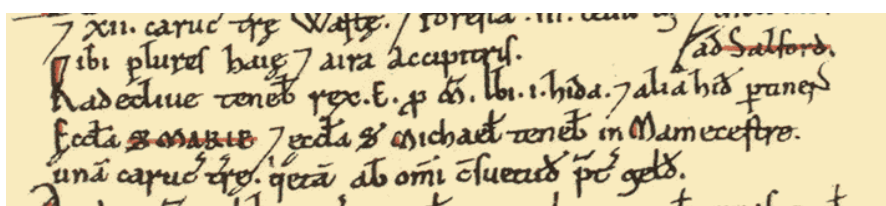 ⁊ xii. caruc̄ tr̄ę Waſtę. ⁊ foreſta .iii. leuu
⁊ ibi plures haię ⁊ aira accipitris.
ad Salford.
Radecliue teneb̄ rex.E. ꝓ m̄. Ibi.i.hida. ⁊ alia hid̄ ꝑtineñ
Eccl̄a S MARIE ⁊ eccl̄a S Michael teneb̄ in Mamecestre.
unā caruc̄ tr̄ę. q̇etā ab om̄i c̄ſuetud̄ p̄t̄ geld̄.